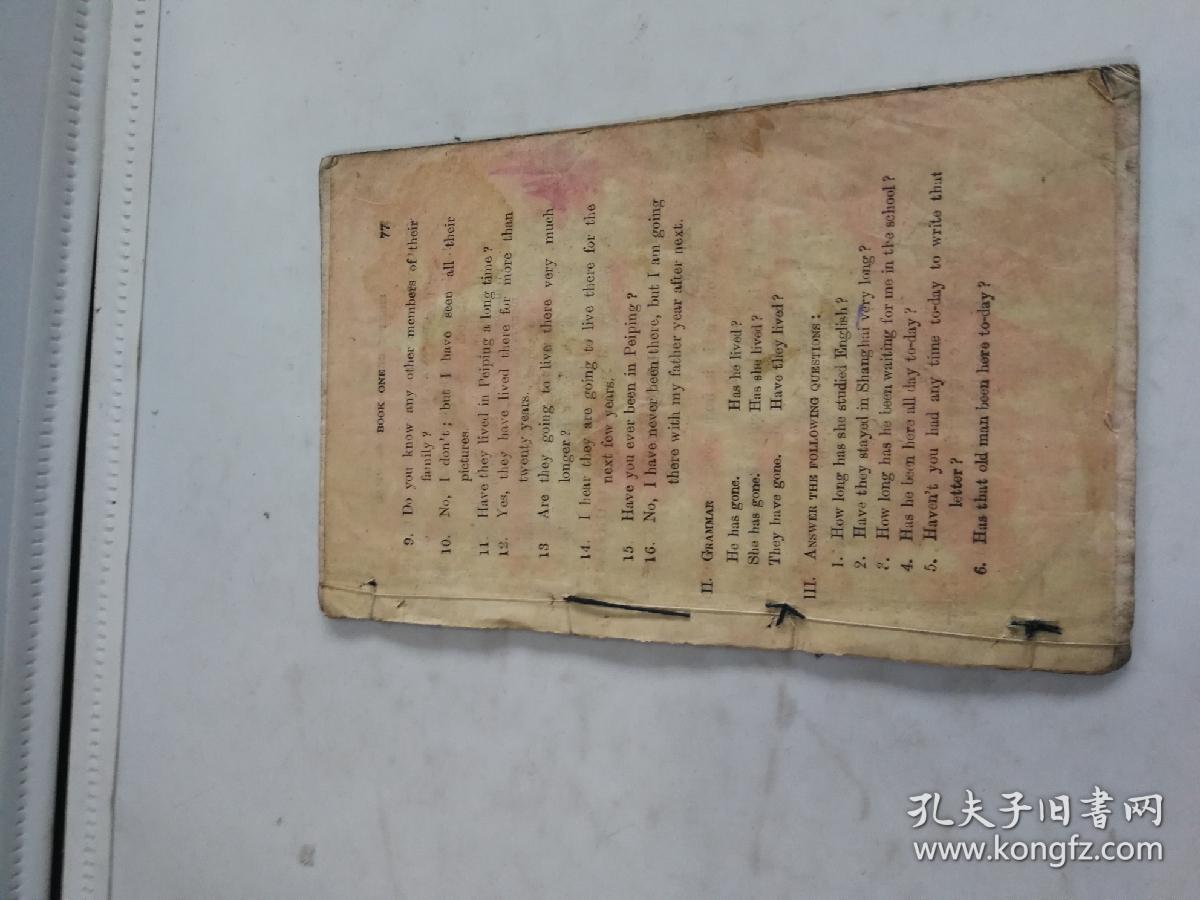 BOOK ONE 77
9. Do you know any other members of their
family?
10. No, I don't; but I have seen all their
pictures.
11 Have they lived in Peiping a long time?
12. Yes, they have lived there for more than
twenty years.
13 Are they going to live there very much
longer?
14. I hear they are going to live there for the
next few years.
15 Have you ever been in Peiping?
16. No, I have never been there, but I am going
there with my father year after next.
II. GRAMMAR
He has gone. Has he lived?
She has gone. Has she lived?
They have gone. Have they lived?
III. ANSWER THE FOLLOWING QUESTIONS:
1. How long has she studied English?
2. Have they stayed in Shanghai very long?
3. How long has he been waiting for me in the school?
4. Has he been here all day to-day?
5. Haven't you had any time to-day to write that
letter?
6. Has that old man been here to-day?
孔夫子旧书网
www.kongfz.com